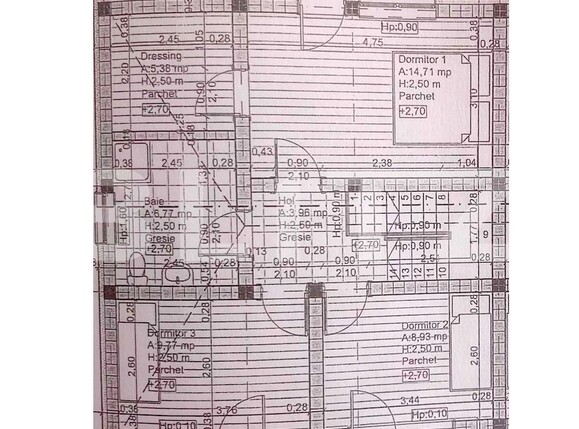 Hp:0,90
2,45
0,28
4,75
0,28
0,38
1,05
Dressing
A:5,38 mp
H:2,50 m
Parchet
+2,70
2,20
0,90
2,10
Dormitor 1
A:14,71 mp
H:2,50 m
Parchet
+2,70
3,10
0,38
2,45
0,28
0,43
0,90
2,10
2,38
1,04
Baie
A:6,77 mp
H:2,50 m
Gresie
+2,70
Hp:1,60
0,90
2,10
Hol
A:3,96 mp
H:2,50 m
Gresie
Hp:0,90 m
1 2 3 4 5 6 7 8
Hp:0,90 m
+2,70
Hp:0,90 m
0,28
1,77
9
14 13 12 11 10
0,13
0,28
2,45
0,90
2,10
0,90
2,10
0,28
0,28
0,28
Dormitor 3
A:9,77 mp
H:2,50 m
Parchet
+2,70
2,60
2,60
Dormitor 2
A:8,93 mp
H:2,50 m
Parchet
+2,70
2,60
0,38
3,76
0,28
3,44
0,28
Hp:0,10
Hp:0,10